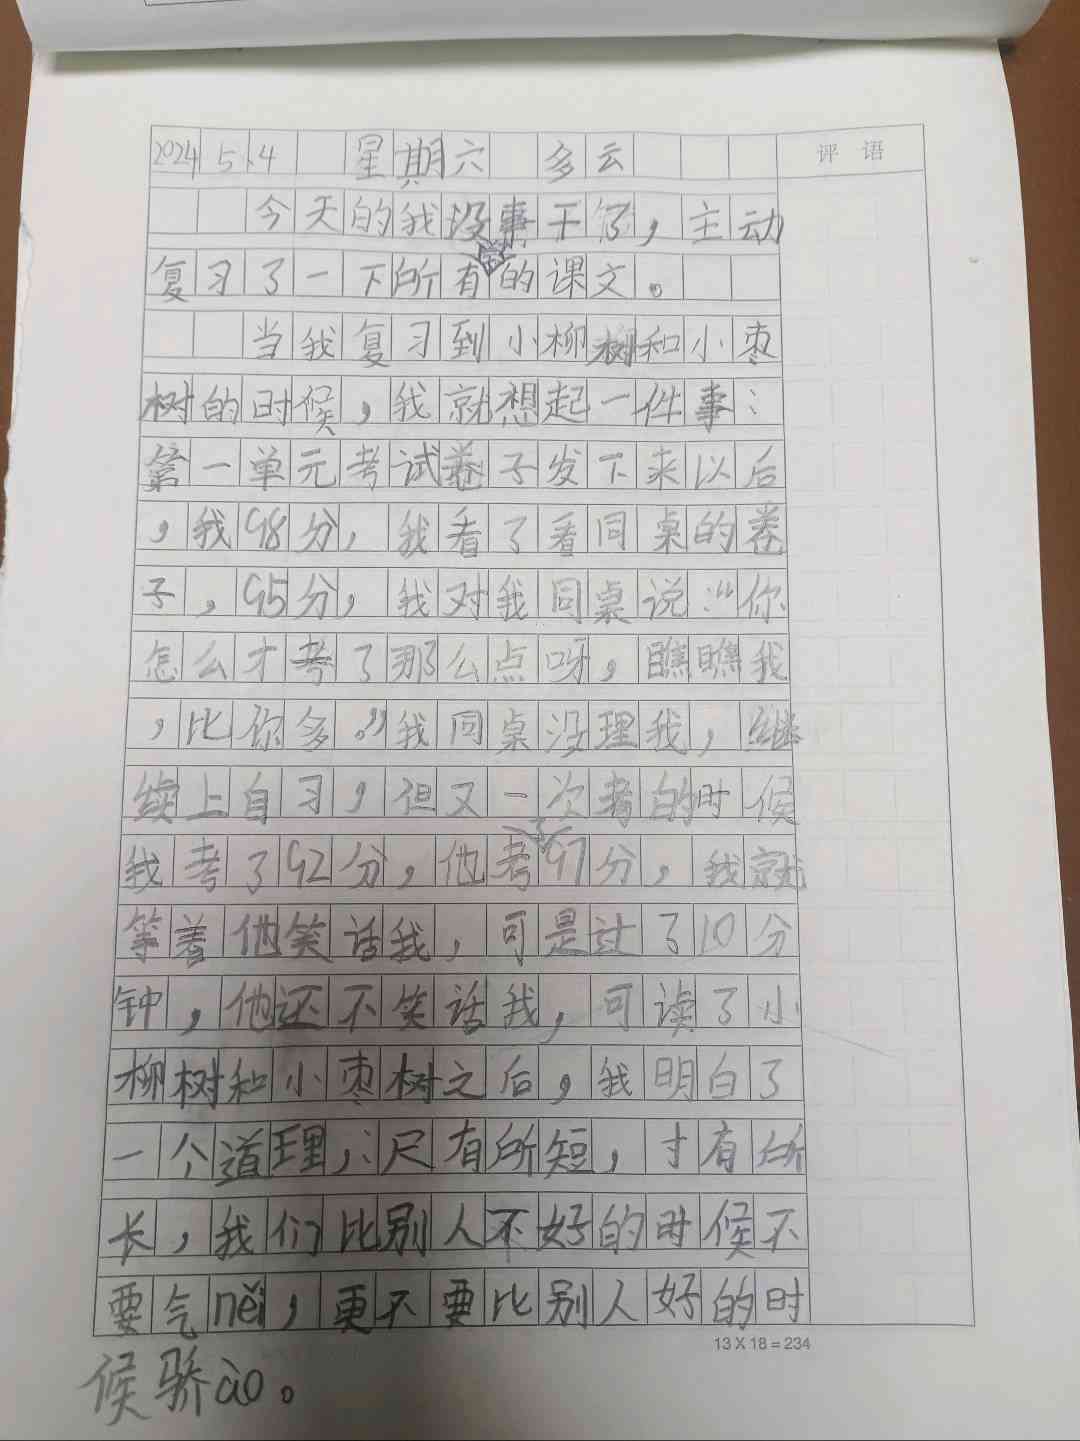 2024 5.4 星期六 多云
评语
今天的我没事干了，主动
复习了一下所有的课文。
当我复习到小柳树和小枣
树的时候，我就想起一件事：
第一单元考试卷子发下来以后
，我98分，我看了看同桌的卷
子，95分，我对我同桌说：“你
怎么才考了那么点呀，瞧瞧我
，比你多。”我同桌没理我，继
续上自习，但又一次考的时候
我考了92分，他考了97分，我就
等着他笑话我，可是过了10分
钟，他还不笑话我，可读了小
柳树和小枣树之后，我明白了
一个道理，：尺有所短，寸有所
长，我们比别人不好的时候不
要气něi，更不要比别人好的时
候骄ào。
13X18=234